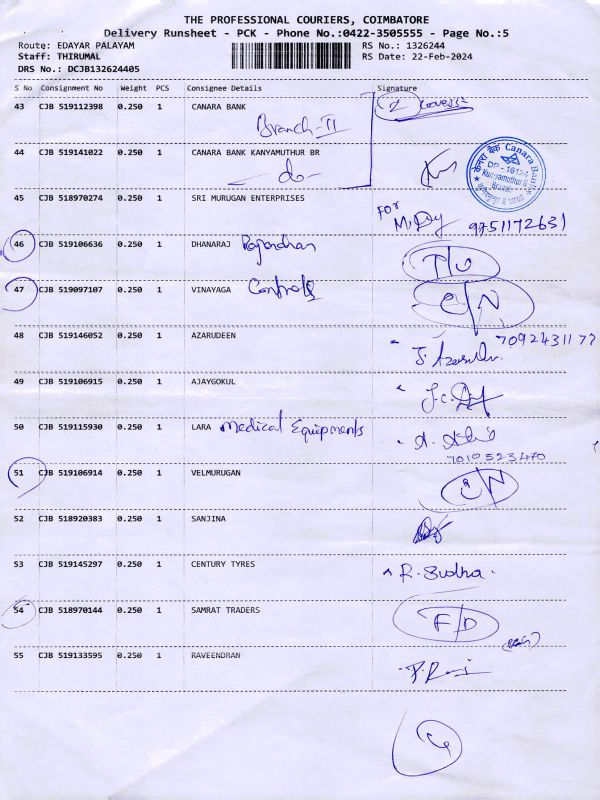 THE PROFESSIONAL COURIERS, COIMBATORE
Delivery Runsheet - PCK - Phone No.:0422-3505555 - Page No.:5
Route: EDAYAR PALAYAM RS No.: 1326244
Staff: THIRUMAL RS Date: 22-Feb-2024
DRS No.: DCJB132624405
S No Consignment No Weight PCS Consignee Details Signature
43 CJB 519112398 0.250 1 CANARA BANK
Branch-II
44 CJB 519141022 0.250 1 CANARA BANK KANYAMUTHUR BR
-do-
केनरा बैंक Canara Bank
45 CJB 518970274 0.250 1 SRI MURUGAN ENTERPRISES
For
9751172631
46 CJB 519106636 0.250 1 DHANARAJ Rajendran
47 CJB 519097107 0.250 1 VINAYAGA Controls
48 CJB 519146052 0.250 1 AZARUDEEN 7092431177
49 CJB 519106915 0.250 1 AJAYGOKUL
50 CJB 519115930 0.250 1 LARA Medical Equipments
7010523470
51 CJB 519106914 0.250 1 VELMURUGAN
52 CJB 518920383 0.250 1 SANJINA
53 CJB 519145297 0.250 1 CENTURY TYRES R. Sudha.
54 CJB 518970144 0.250 1 SAMRAT TRADERS F/D
55 CJB 519133595 0.250 1 RAVEENDRAN